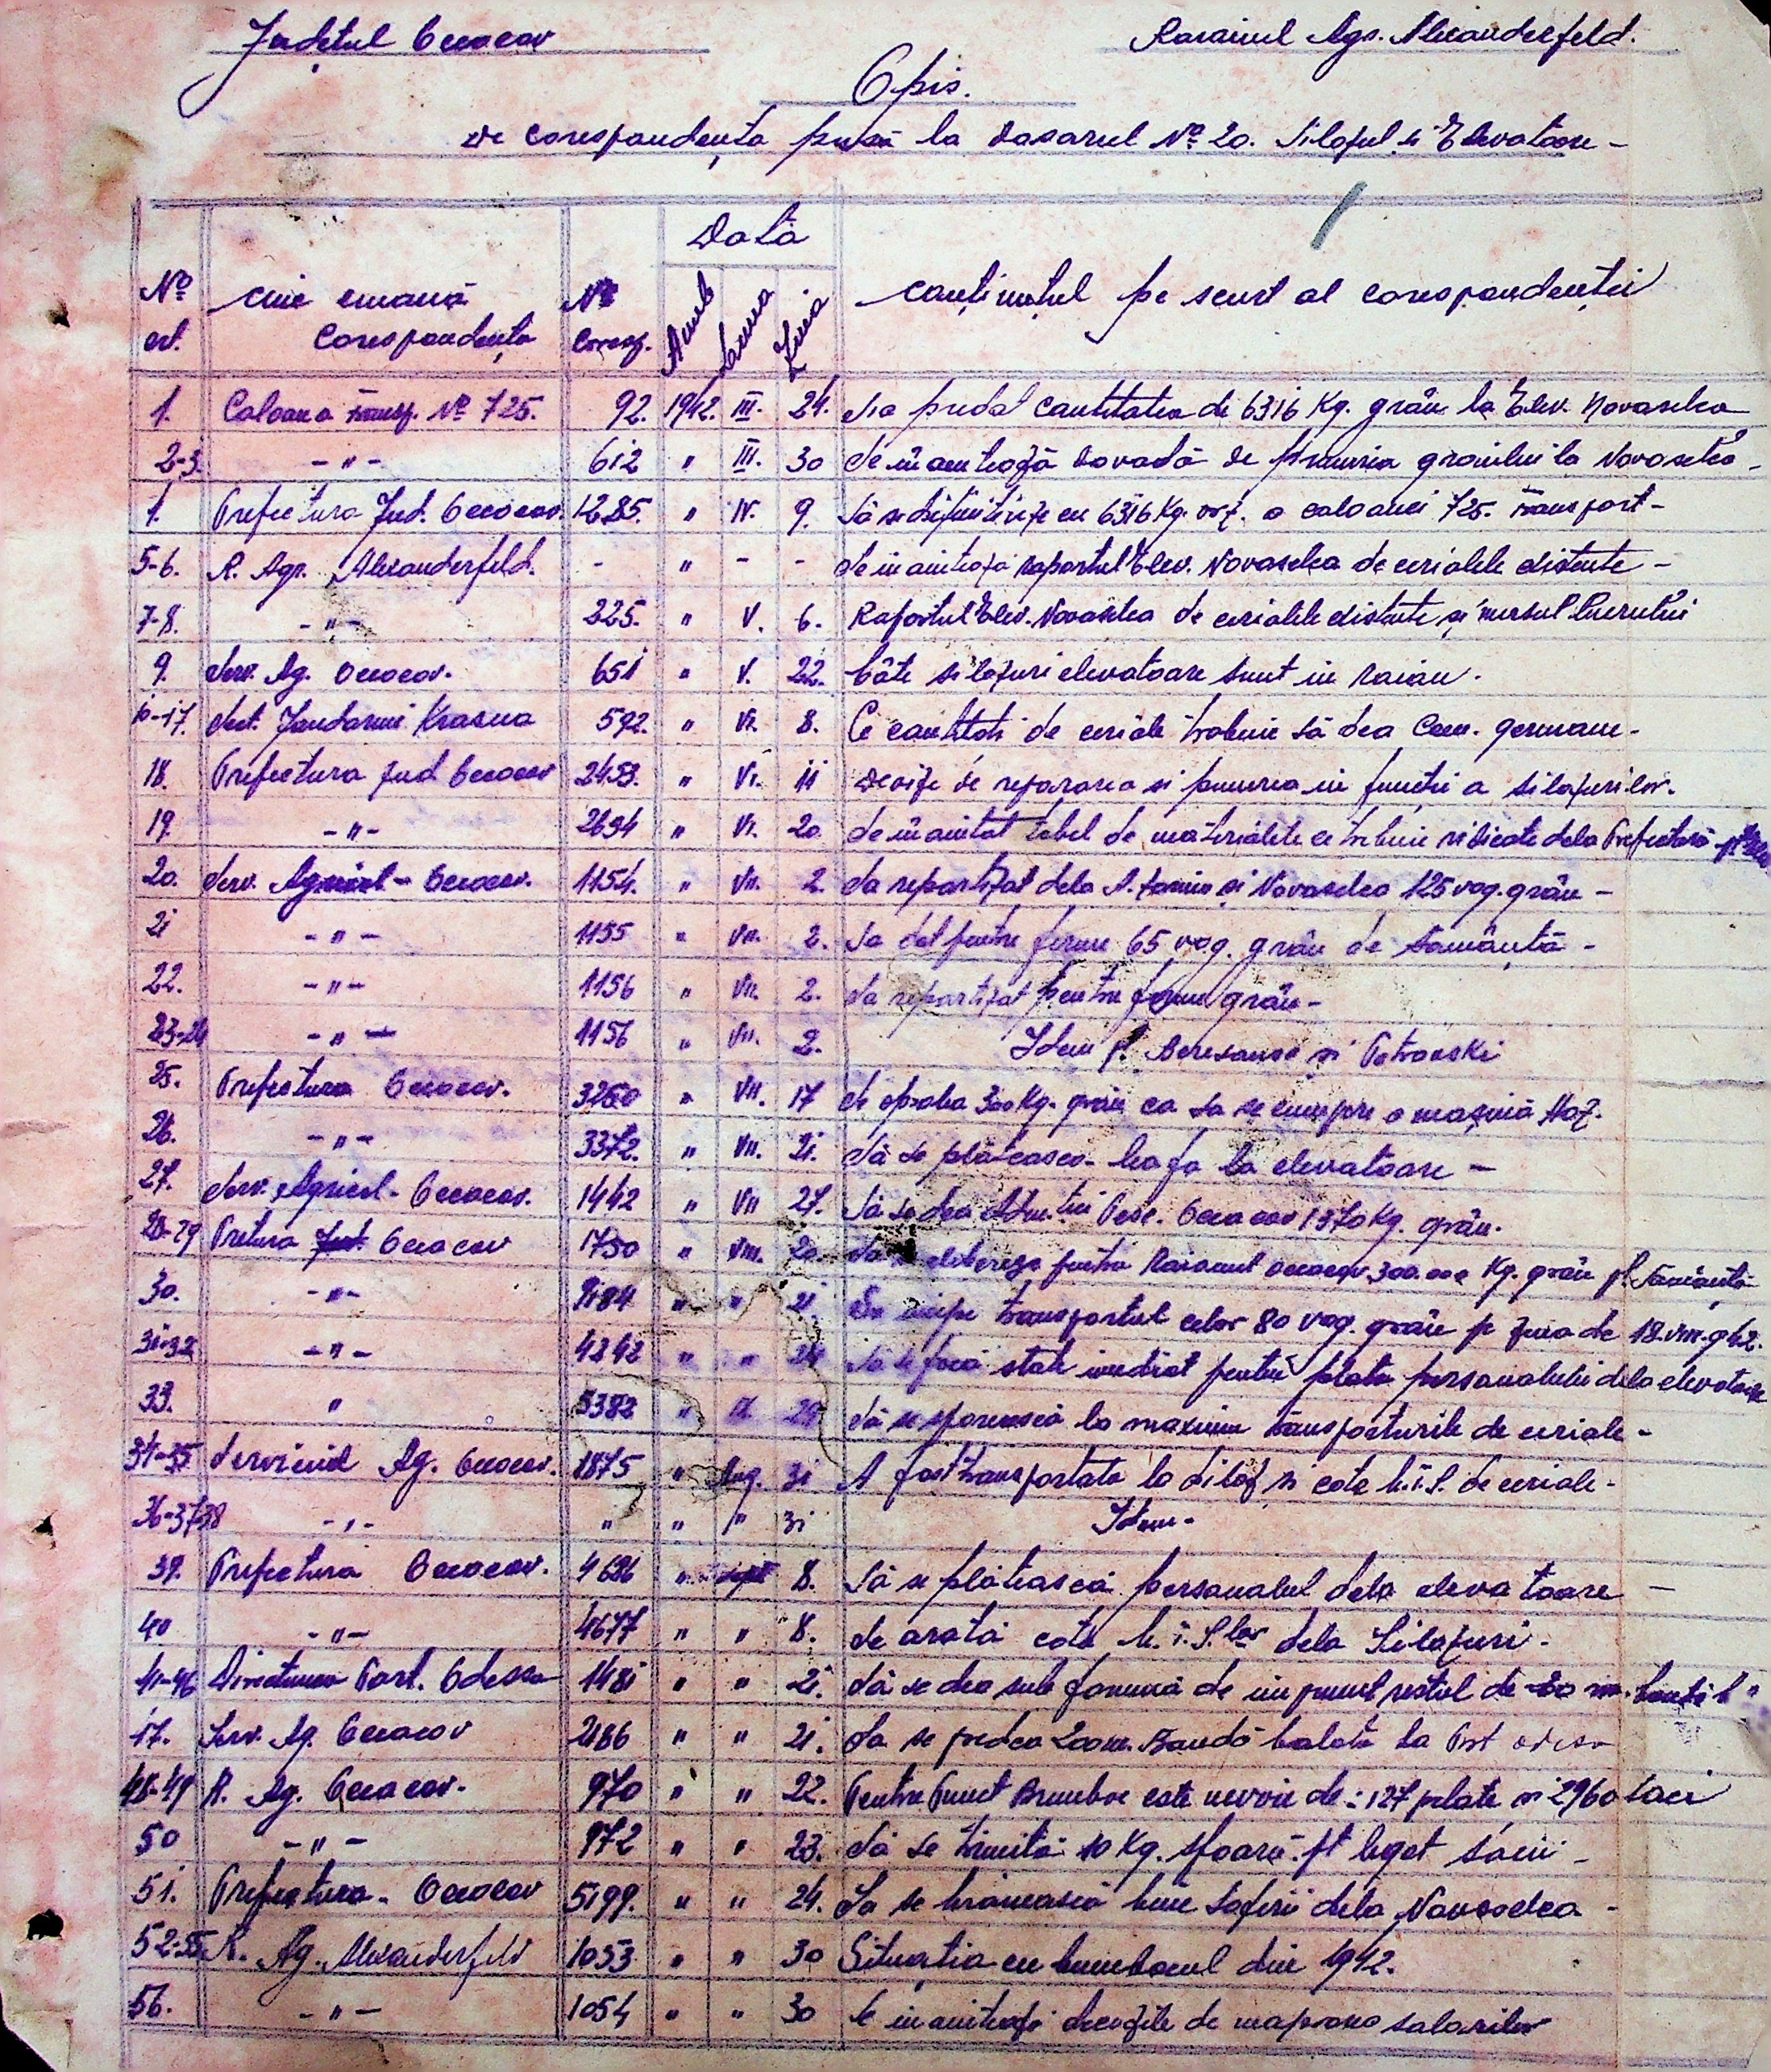 Județul Oceacov
Raionul Agr. Alexanderfeld.
Opis.
De corespondența pusă la Dosarul Nº 20. Silozul și Elevatoare -
Data
Nº crt.
cine emană Corespondența
Nº Coresp.
Anul
Luna
Ziua
conținutul pe scurt al corespondenței
1. Coloana transp. Nº 725. 92. 1942. III. 24. S'a predat cantitatea de 6316 Kg. grâu la Elev. Novoselca
2-3. -"- 612 " III. 30 Se înaintează dovadă de primirea grâului la Novoselca -
1. Prefectura Jud. Oceacov. 1285. " IV. 9. Să se definitiveze cu 6316 Kg. orz. a coloanei 725. transport -
5-6. R. Agr. Alexanderfeld. - " - - Se inainteaza raportul Elev. Novoselca de cerialele existente -
7-8. -"- 225. " V. 6. Raportul Elev. Novoselca de cerialele existente și mersul lucrului
9. Serv. Ag. Oceacov. 651 " V. 22. Câte silozuri elevatoare sunt in raion.
10-17. Sect. Jandarmi Krasna 592. " VI. 8. Ce cantitati de ceriale trebuie să dea Com. germane -
18. Prefectura Jud Oceacov 2453. " VI. 11 Devize de repararea si punerea in functie a silozurilor.
19. -"- 2694 " VI. 20 Se inaintat tabel de materialele ce trebuie ridicate dela Prefectură
20. Serv. Agricol - Oceacov. 1154. " VII. 2 Sa repartizat dela si Novoselca 125 vag. grâu -
21 -"- 1155 " VII. 2. Sa dat pentru ferme 65 vag. grâu de sământă -
22. -"- 1156 " VII. 2. Sa repartizat pentru ferme grâu -
23-24 -"- 1156 " VII. 2. Idem p. și Petrovski
25. Prefectura Oceacov. 3260 " VII. 17 Se aproba 300 Kg. grâu ca sa se cumpere o mașină
26. -"- 3372. " VII. 21. Să se plătească leafa la elevatoare -
27. Serv. Agricol - Oceacov. 1442 " VII 27. Să se dea Pesc. Oceacov 1370 Kg. grâu.
28-29 Pretura Oceacov 1750 " VIII. 20 Sa se elibereze pentru Raionul Oceacov 300.000 Kg. grâu pt. Sământă
30. -"- " " 21. Se incepe transportul celor 80 vag. grâu pe ziua de 18.VIII.942.
31-32 -"- 4242 " " Să se facă state imediat pentru plata personalului dela elevatoare
33. " 5382 " IX 29 Să se sporească la maxim transporturile de ceriale -
34-35 Serviciul Ag. Oceacov. 1875 " Aug. 31 A fost transportata la siloz si cota de ceriale -
36-37-38 -"- " " " 31 Idem -
39. Prefectura Oceacov. 4686 " sept 8. Să se plătească personalul dela elevatoare -
40 -"- 4677 " " 8. Se arată cota dela Silozuri.
41-46 Directiunea Port. Odessa 1481 " " 21. Să se dea sub formă de imprumut restul de
47. Serv. Ag. Oceacov 2186 " " 21. Sa se predea 200 m. Bandă balata la Port
48-49 R. Ag. Oceacov. 970 " " 22. Pentru Punct Bumbac este nevoie de: 127 și 2960 saci
50 -"- 972 " " 23. Să se trimită 10 Kg. sfoară pt legat sacii -
51. Prefectura - Oceacov 5199. " " 24. Sa se hrănească bine soferii dela Novoselca -
52-55. R. Ag. Alexanderfeld 1053 " " 30 Situatia cu bumbacul din 1942.
56. -"- 1054 " " 30 Se inainteaza salariilor